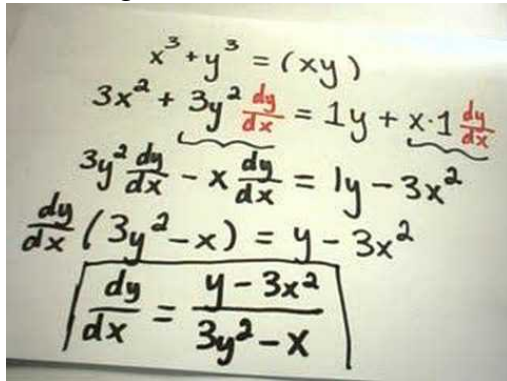 x³ + y³ = (xy)
3x² + 3y² dy/dx = 1y + x·1 dy/dx
3y² dy/dx - x dy/dx = 1y - 3x²
dy/dx (3y² - x) = y - 3x²
dy/dx = y - 3x² / 3y² - x